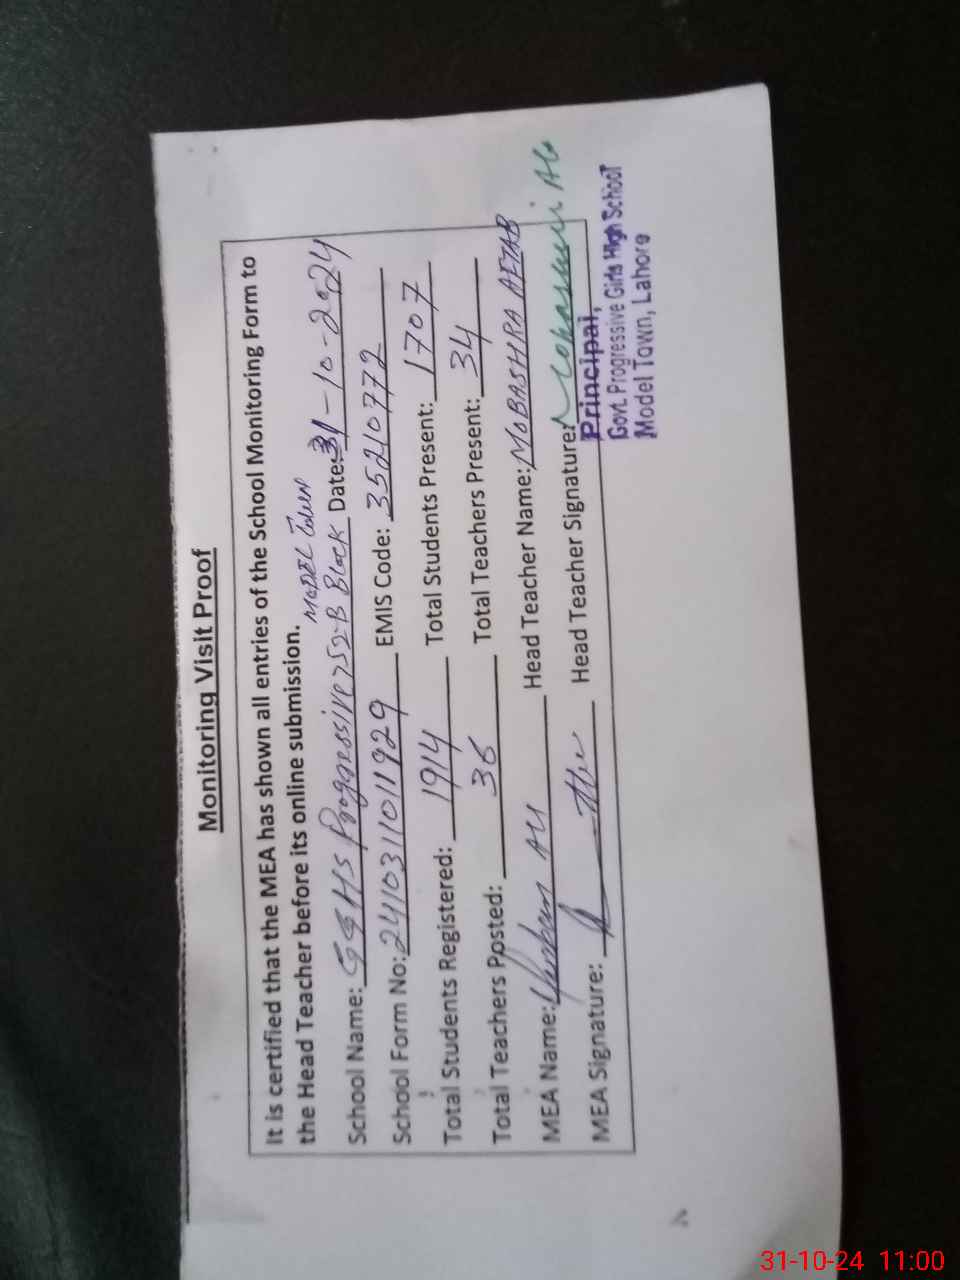 Monitoring Visit Proof
It is certified that the MEA has shown all entries of the School Monitoring Form to
the Head Teacher before its online submission.
MODEL Town
School Name: GGHS Progressive 752-B Block Date: 31-10-2024
School Form No: 2410311011929 EMIS Code: 35210772
Total Students Registered: 1914 Total Students Present: 1707
Total Teachers Posted: 36 Total Teachers Present: 34
MEA Name: Ali Head Teacher Name: MOBASHRA AFTAB
MEA Signature: Head Teacher Signature:
Principal,
Govt. Progressive Girls High School
Model Town, Lahore
31-10-24 11:00